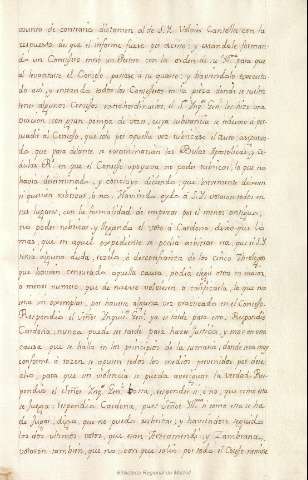 asunto de contrario dictamen al de S.I. Votose Cantolla con la
respuesta de que el informe fuese por escrito; y estandole forman-
do un Consejero entrò un Bueno con la orden de su Ill.ª para que
al levantarse el Consejo, pasase a su quarto; y haviendolo executa-
do assi, y entrado todos los Consejeros en la pieza donde se suelen
tener algunos Consejos extraordinarios, el S.r Inq.r Gen.l les hizo una
oracion con gran pompa de voces, cuya substancia se reduxo a per-
suadir al Consejo, que solo por aquella vez rubricase el auto, asegurando,
que para adelante se examinarian las Bullas Apostolicas, y ce-
dulas R.s en que el Consejo apoyava no poder rubricar, lo que no
havia determinado, y concluyó diciendo, que brevemente dixesen
si querian rubricar, ò no. Haviendo oydo a S.I. votaron todos en
sus lugares, con la formalidad de empezar por el menos antiguo,
no poder rubricar, y llegando el voto a Cardona, dixo que lo
mas, que en aquel expediente se podia arbitrar era, que si S.I.
tenia alguna duda, rezelo, ò desconfianza de los cinco Theologos
que havian censurado aquella causa, podia elegir otros en mayor,
ò menor numero, que de nuevo volviesen a calificarla, lo que no
era sin exemplar, por haverse alguna vez practicado en el Consejo.
Respondio el Señor Inquis.r Gen.l ya es tarde para eso. Respondio
Cardona; nunca puede ser tarde para hacer Justicia, y mas en una
causa que se halla en los principios de la sumaria, donde era muy
conforme a razon se apuren todos los medios prevenidos por dere-
cho, para que sin violencia se pueda averiguar la verdad. Res-
pondio el Señor Inq.r Gen.l responder si, ò no, que como esta
se juzga: respondio Cardona, pues Señor Ill.mo si como esta se ha
de juzgar, digo, que no puedo rubricar, y haviendose seguido
los dos ultimos votos, que eran Arzeamendi, y Zambrana,
votaron tambien, que no, con que salio por todo el Consejo
Biblioteca Regional de Madrid